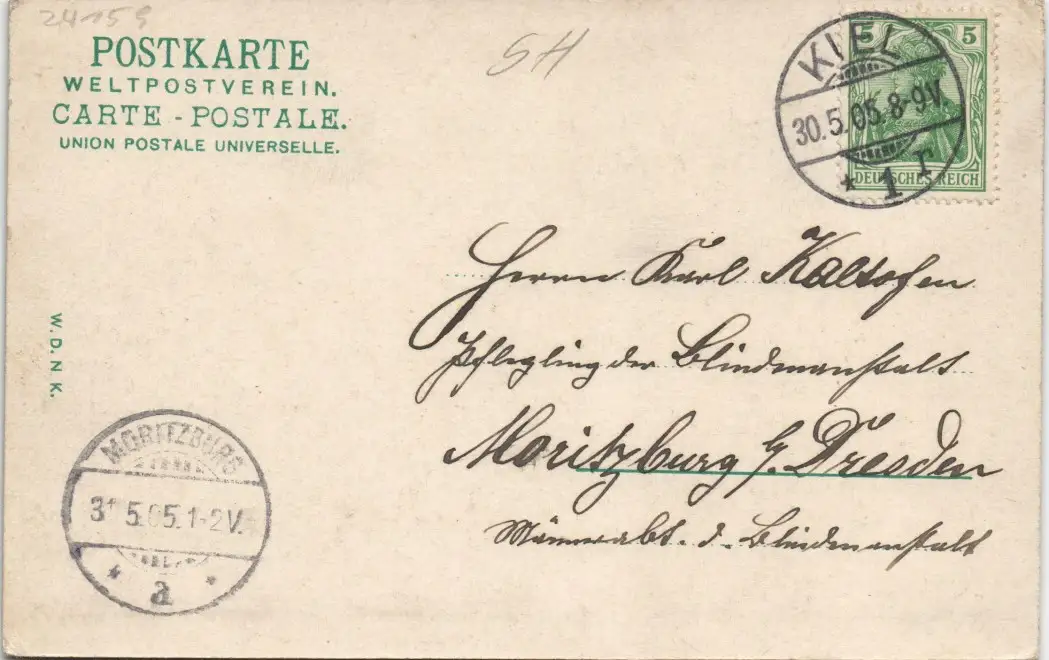 24159
SH
POSTKARTE
WELTPOSTVEREIN.
CARTE - POSTALE.
UNION POSTALE UNIVERSELLE.
5 5
DEUTSCHES REICH
KIEL
30.5.05.8-9V.
* 1 r
Herrn Karl Kalsofen
Pflegling der Blindenanstalt
Moritzburg b/ Dresden
Männerabt. d. Blindenanstalt
W. D. N. K.
MORITZBURG
31 5.05.1-2V.
* a *